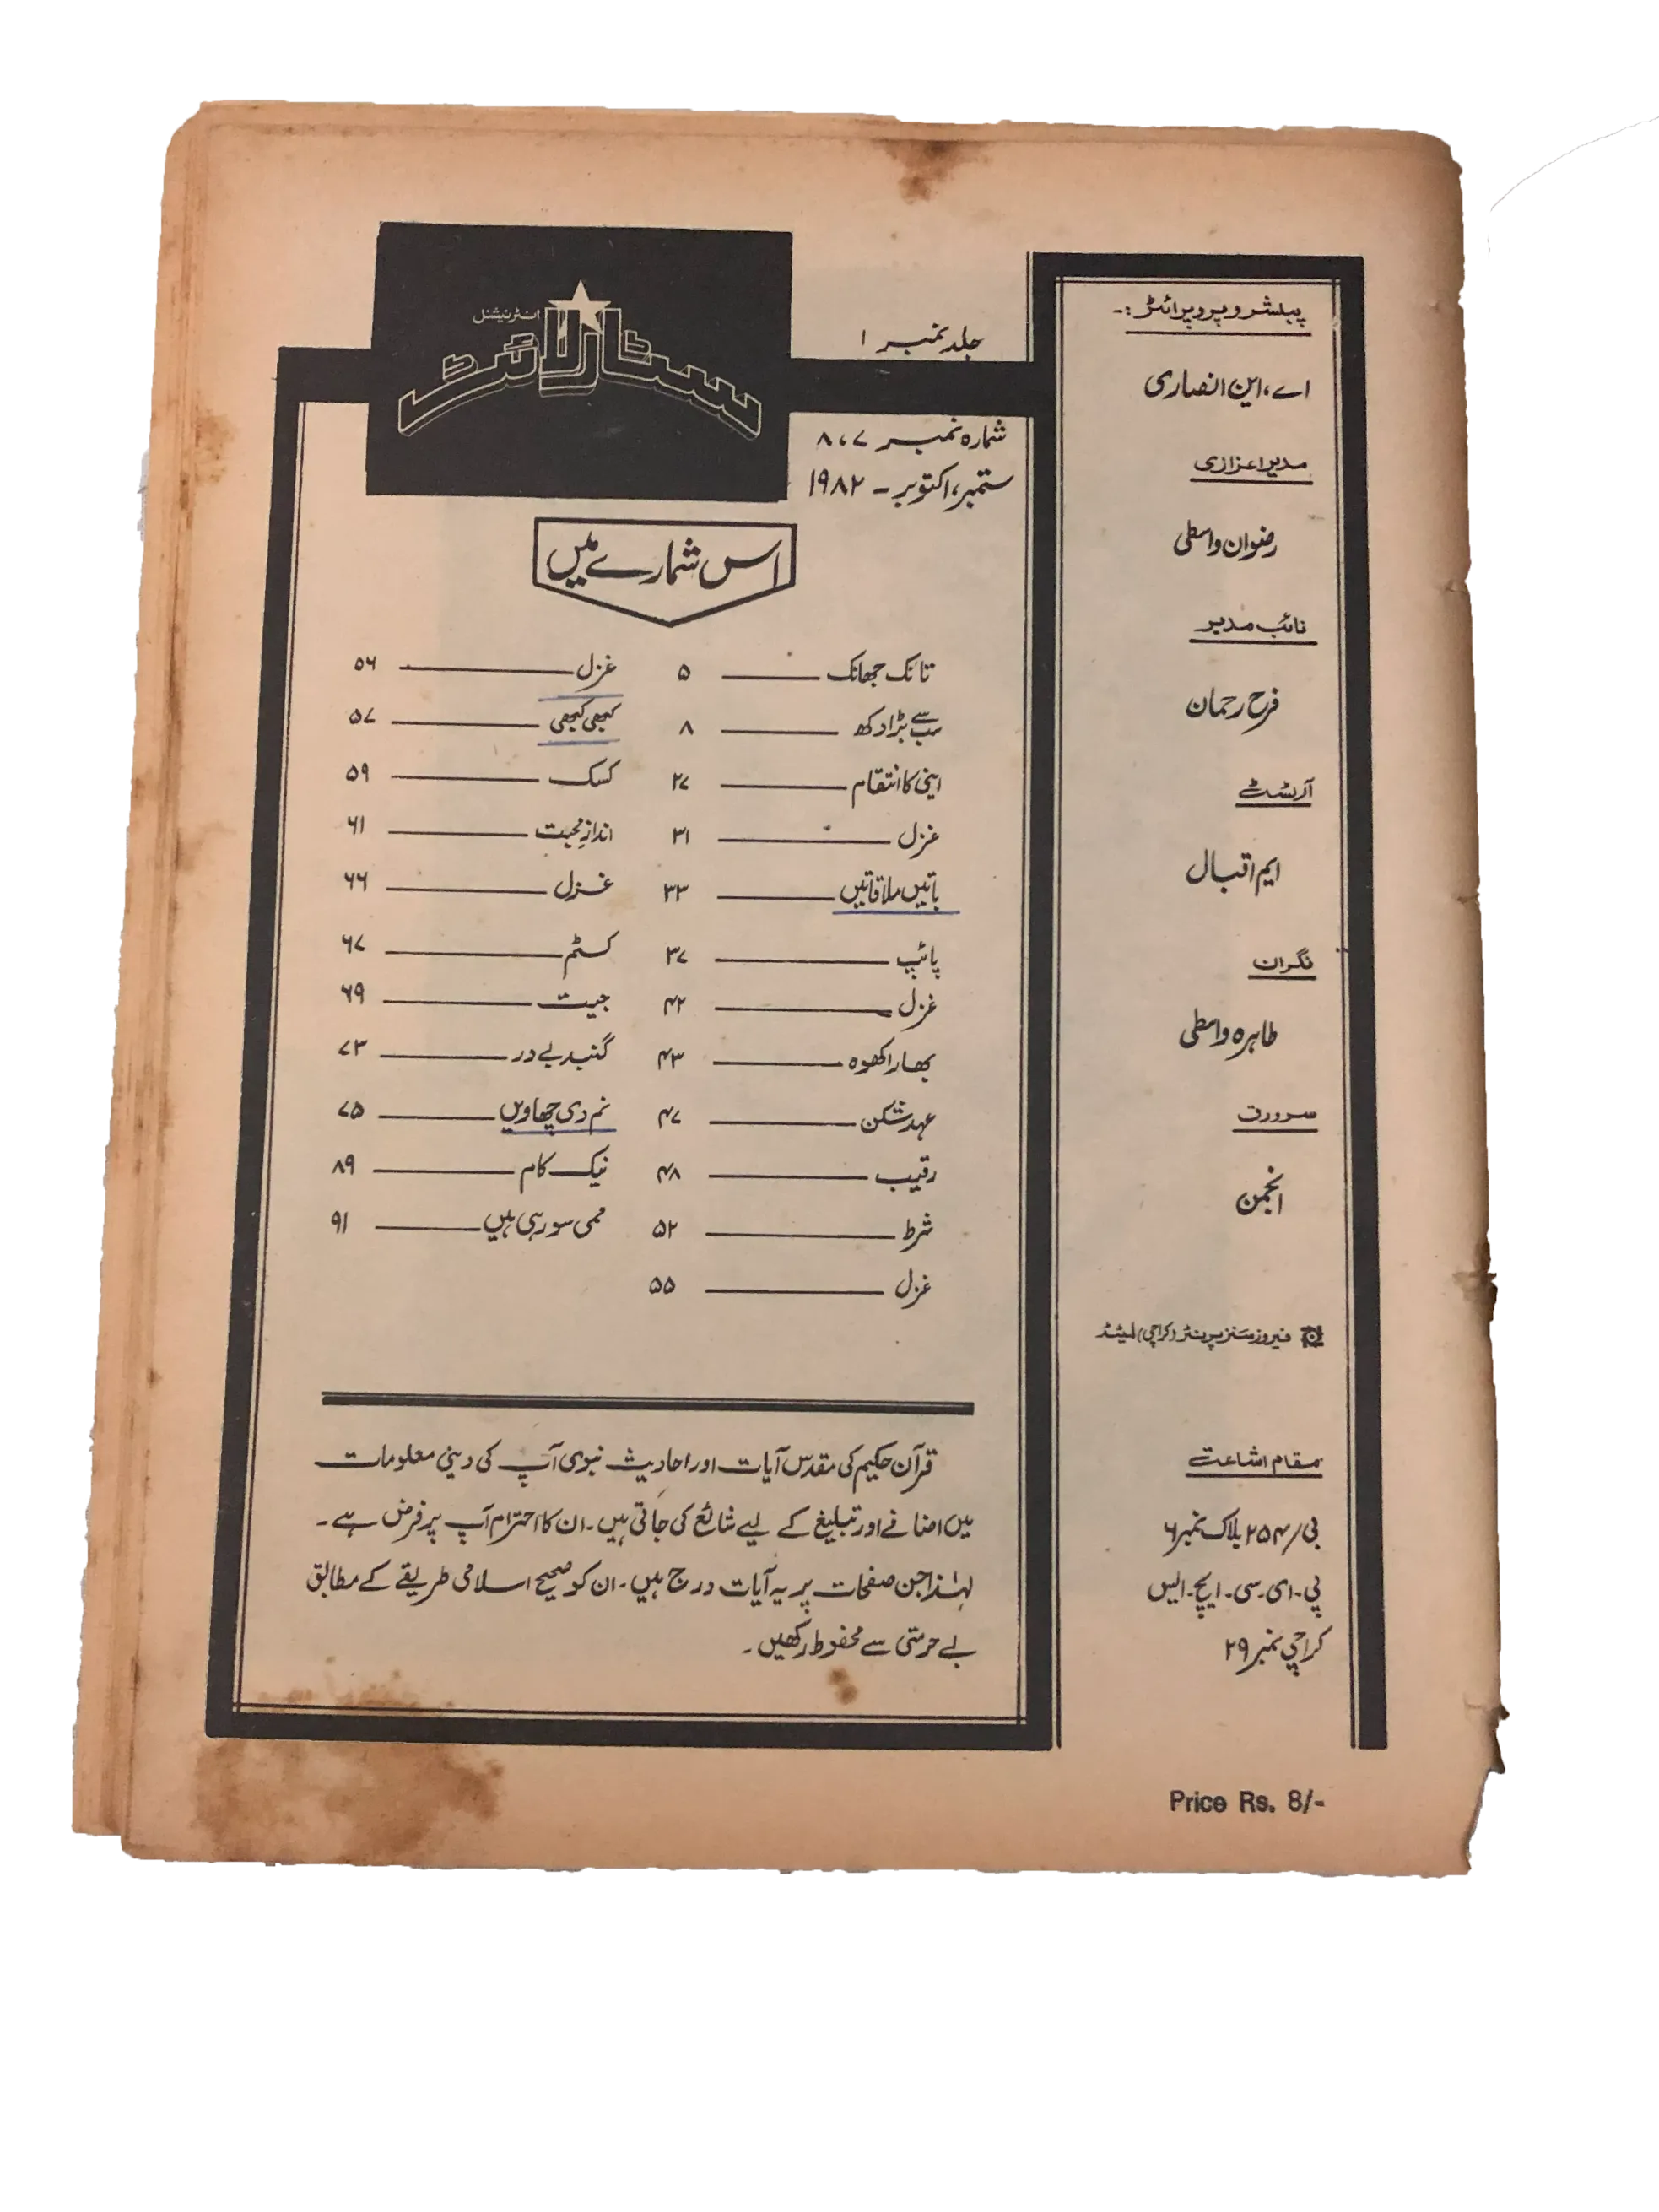 پبلشر و پروپرائٹر :-
اے، این انصاری
مدیر اعزازی
رضوان واسطی
نائب مدیر
فرح رحمان
آرٹسٹ
ایم اقبال
نگران
طاہرہ واسطی
سرورق
انجمن
فیروز سنز پرنٹر (کراچی) لمیٹڈ
مقام اشاعت
بی/۲۵۴ بلاک نمبر ۶
پی۔ ای۔ سی۔ ایچ۔ ایس
کراچی نمبر ۲۹
انٹرنیشنل
سٹار لائٹ
جلد نمبر ۱
شمارہ نمبر ۷، ۸
ستمبر، اکتوبر - ۱۹۸۲
اس شمارے میں
تانک جھانک ۵
سب سے بڑا دکھ ۸
اپنی کا انتقام ۲۷
غزل ۳۱
باتیں ملاقاتیں ۳۳
پائپ ۳۷
غزل ۴۲
بھارا کھوہ ۴۳
عہد شکن ۴۷
رقیب ۴۸
شرط ۵۲
غزل ۵۵
غزل ۵۶
کبھی کبھی ۵۷
کسک ۵۹
انداز محبت ۶۱
غزل ۶۶
کسٹم ۶۷
جیت ۶۹
گنبد بے در ۷۳
نم دی چھاویں ۷۵
نیک کام ۸۹
ممی سو رہی ہیں ۹۱
قرآن حکیم کی مقدس آیات اور احادیث نبوی آپ کی دینی معلومات
میں اضافے اور تبلیغ کے لیے شائع کی جاتی ہیں۔ ان کا احترام آپ پر فرض ہے۔
لہٰذا جن صفحات پر یہ آیات درج ہیں۔ ان کو صحیح اسلامی طریقے کے مطابق
بے حرمتی سے محفوظ رکھیں۔
Price Rs. 8/-